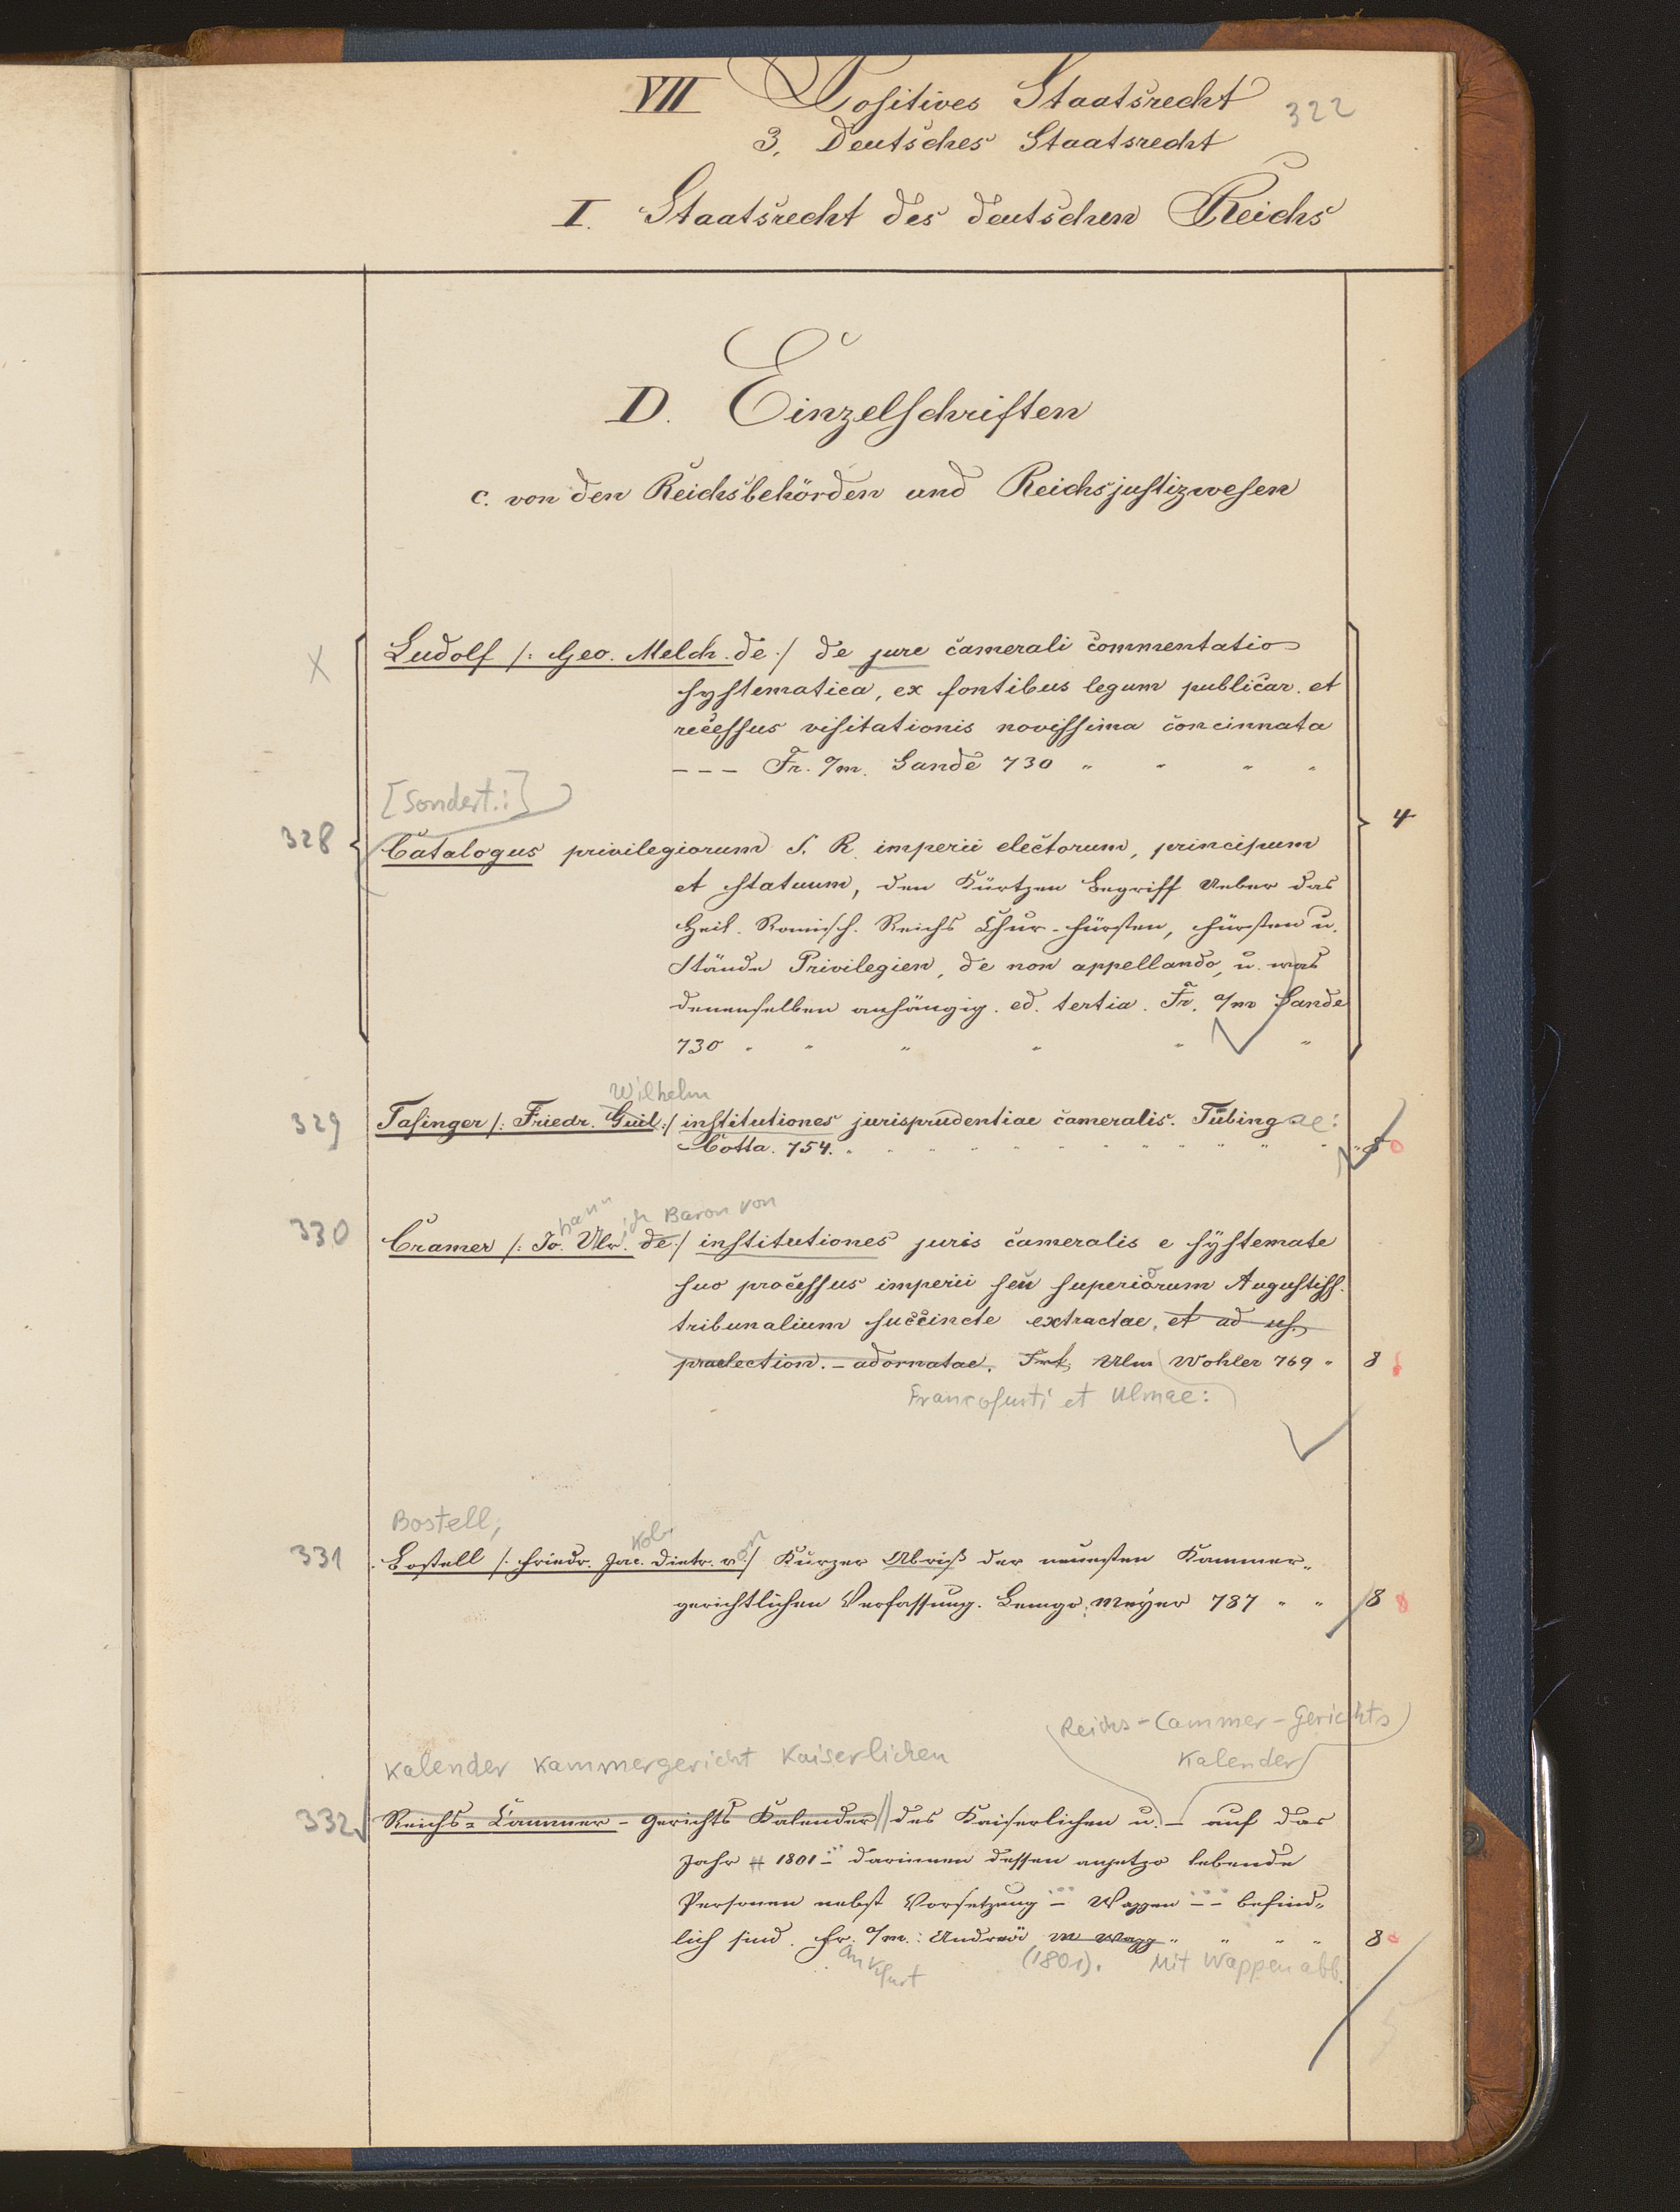 VII Positives Staatsrecht 322
3. Deutsches Staatsrecht
I. Staatsrecht des deutschen Reichs
D. Einzelschriften
c. von den Reichsbehörden und Reichsjustizwesen
X Ludolf /: Geo. Melch. de :/ de jure camerali commentatio
systematica, ex fontibus legum publicar. et
recessus visitationis novissima concinnata
--- Fr. a/m. Sande 730 " " " "
[Sondert.:]
328 Catalogus privilegiorum S. R. imperii electorum, principum 4
et statuum, den Kürtzen Begriff Ueber das
Heil. Romisch. Reichs Chur-fürsten, Fürsten u.
Stände Privilegien, de non appellando, u. was
denenselben anhängig. ed. tertia. Fr. a/m Sande
730 " " " " " "
Wilhelm
329 Tafinger /: Friedr. Guil :/ institutiones jurisprudentiae cameralis. Tübingae:
Cotta. 754. " " " " " " " " " " " 8
hann ich Baron von
330 Cramer /: Jo. Ulr. de :/ institutiones juris cameralis e systemate
suo processus imperii seu superiorum Augustiss.
tribunalium succincte extractae, et ad us.
praelection. - adornatae. Frf. Ulm Wohler 769 " 8
Francofurti et Ulmae:
Bostell,
kob
331 Bostell /: Friedr. Jac. Dietr. von :/ Kurzer Abriß der neuesten Kammer-
gerichtlichen Verfassung. Lemgo: Meyer 787 " " 8 8
Reichs-Cammer-Gerichts
Kalender Kammergericht Kaiserlichen Kalender
332 Reichs-Cammer-Gerichts Kalender // des Kaiserlichen u. - auf das
Jahr # 1801 - darinnen dessen anjetzo lebende
Personen nebst Vorsetzung - Wappen -- befind-
lich sind. Fr. a/m.: Andreä m Wapp " " " " 8
ankfurt (1801). Mit Wappenabb.